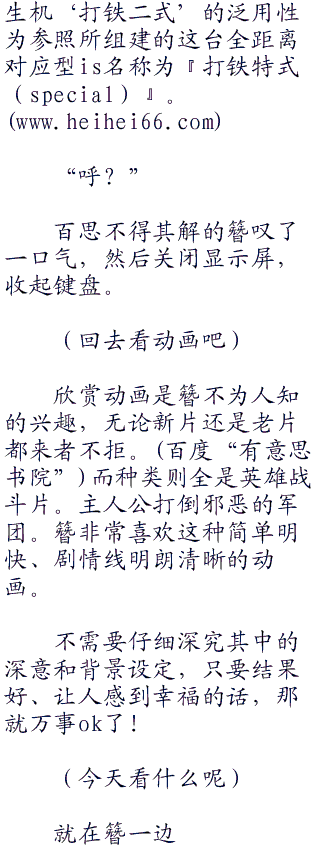 生机‘打铁二式’的泛用性
为参照所组建的这台全距离
对应型is名称为『打铁特式
（special）』。
(www.heihei66.com)
“呼？”
百思不得其解的簪叹了
一口气，然后关闭显示屏，
收起键盘。
（回去看动画吧）
欣赏动画是簪不为人知
的兴趣，无论新片还是老片
都来者不拒。(百度“有意思
书院”)而种类则全是英雄战
斗片。主人公打倒邪恶的军
团。簪非常喜欢这种简单明
快、剧情线明朗清晰的动
画。
不需要仔细深究其中的
深意和背景设定，只要结果
好、让人感到幸福的话，那
就万事ok了！
（今天看什么呢）
就在簪一边